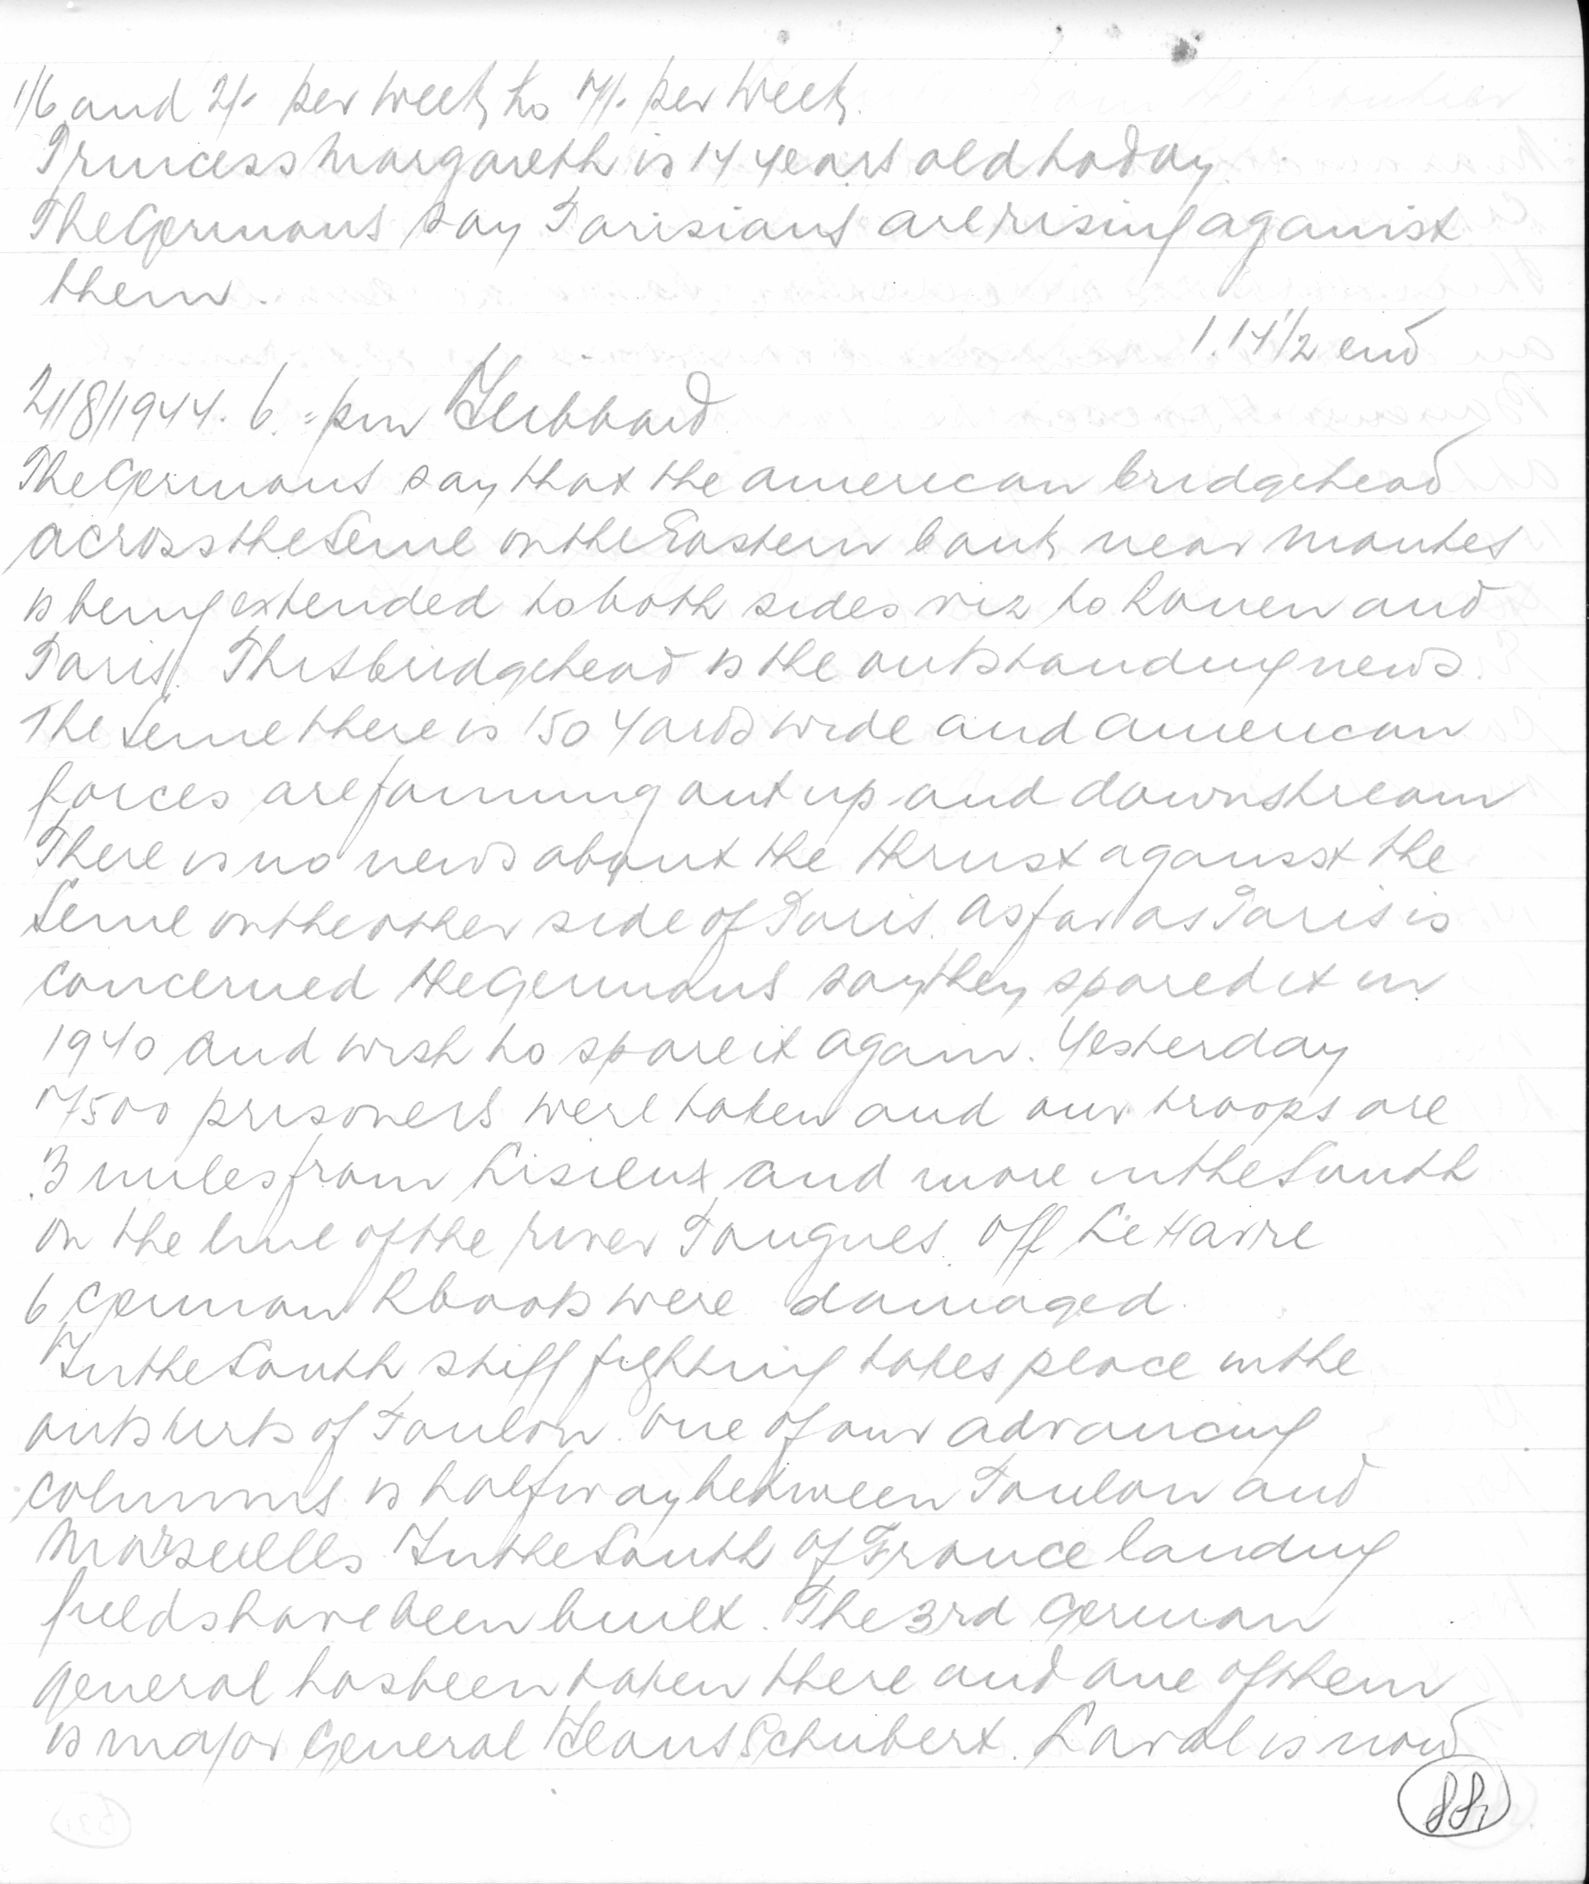 1/6 and 2/- per week to 7/- per week.
Princess Margareth is 14 years old today.
The Germans say Parisians are rising against
them.
1.14 1/2 end
21/8/1944. 6.= pm Hibbard
The Germans say that the American bridgehead
across the Seine on the Eastern bank near Mantes
is being extended to both sides viz to Rouen and
Paris. This bridgehead is the outstanding news.
The Seine there is 150 yards wide and American
forces are fanning out up and downstream
There is no news about the thrust against the
Seine on the other side of Paris. As far as Paris is
concerned the Germans say they spared it in
1940 and wish to spare it again. Yesterday
7500 prisoners were taken and our troops are
3 miles from Lisieux and more in the South
on the line of the river Touques. Off Le Havre
6 German R boats were damaged.
In the South stiff fighting takes place in the
outskirts of Toulon. One of our advancing
columns is halfway between Toulon and
Marseilles. In the South of France landing
fields have been built. The 3rd German
general has been taken there and one of them
is major General Hans Schubert. Laval is now